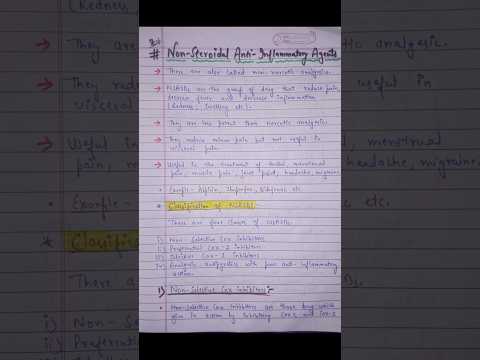 # Non-Steroidal Anti-Inflammatory Agents
→ These are also called non-narcotic analgesics.
→ NSAIDs are the group of drug that reduce pain,
decrease fever and decrease inflammation
(Redness, Swelling etc).
→ They are less potent than narcotic analgesics.
→ They reduce pain but not useful in
visceral pain.
→ Useful in the treatment of menstrual
pain, muscle pain, joint pain, headache, migraine
• Example - Aspirin, Ibuprofen, etc
* Classification of NSAIDs
There are four classes of NSAIDs.
i) Non-Selective Cox Inhibitors
ii) Preferential Cox-2 Inhibitors
iii) Selective Cox-2 Inhibitors
iv) Analgesic antipyretics with poor anti-inflammatory
action
i) Non-Selective Cox Inhibitors:-
• Non-Selective Cox Inhibitors are those drug which
give its action by inhibiting Cox-1 and Cox-2